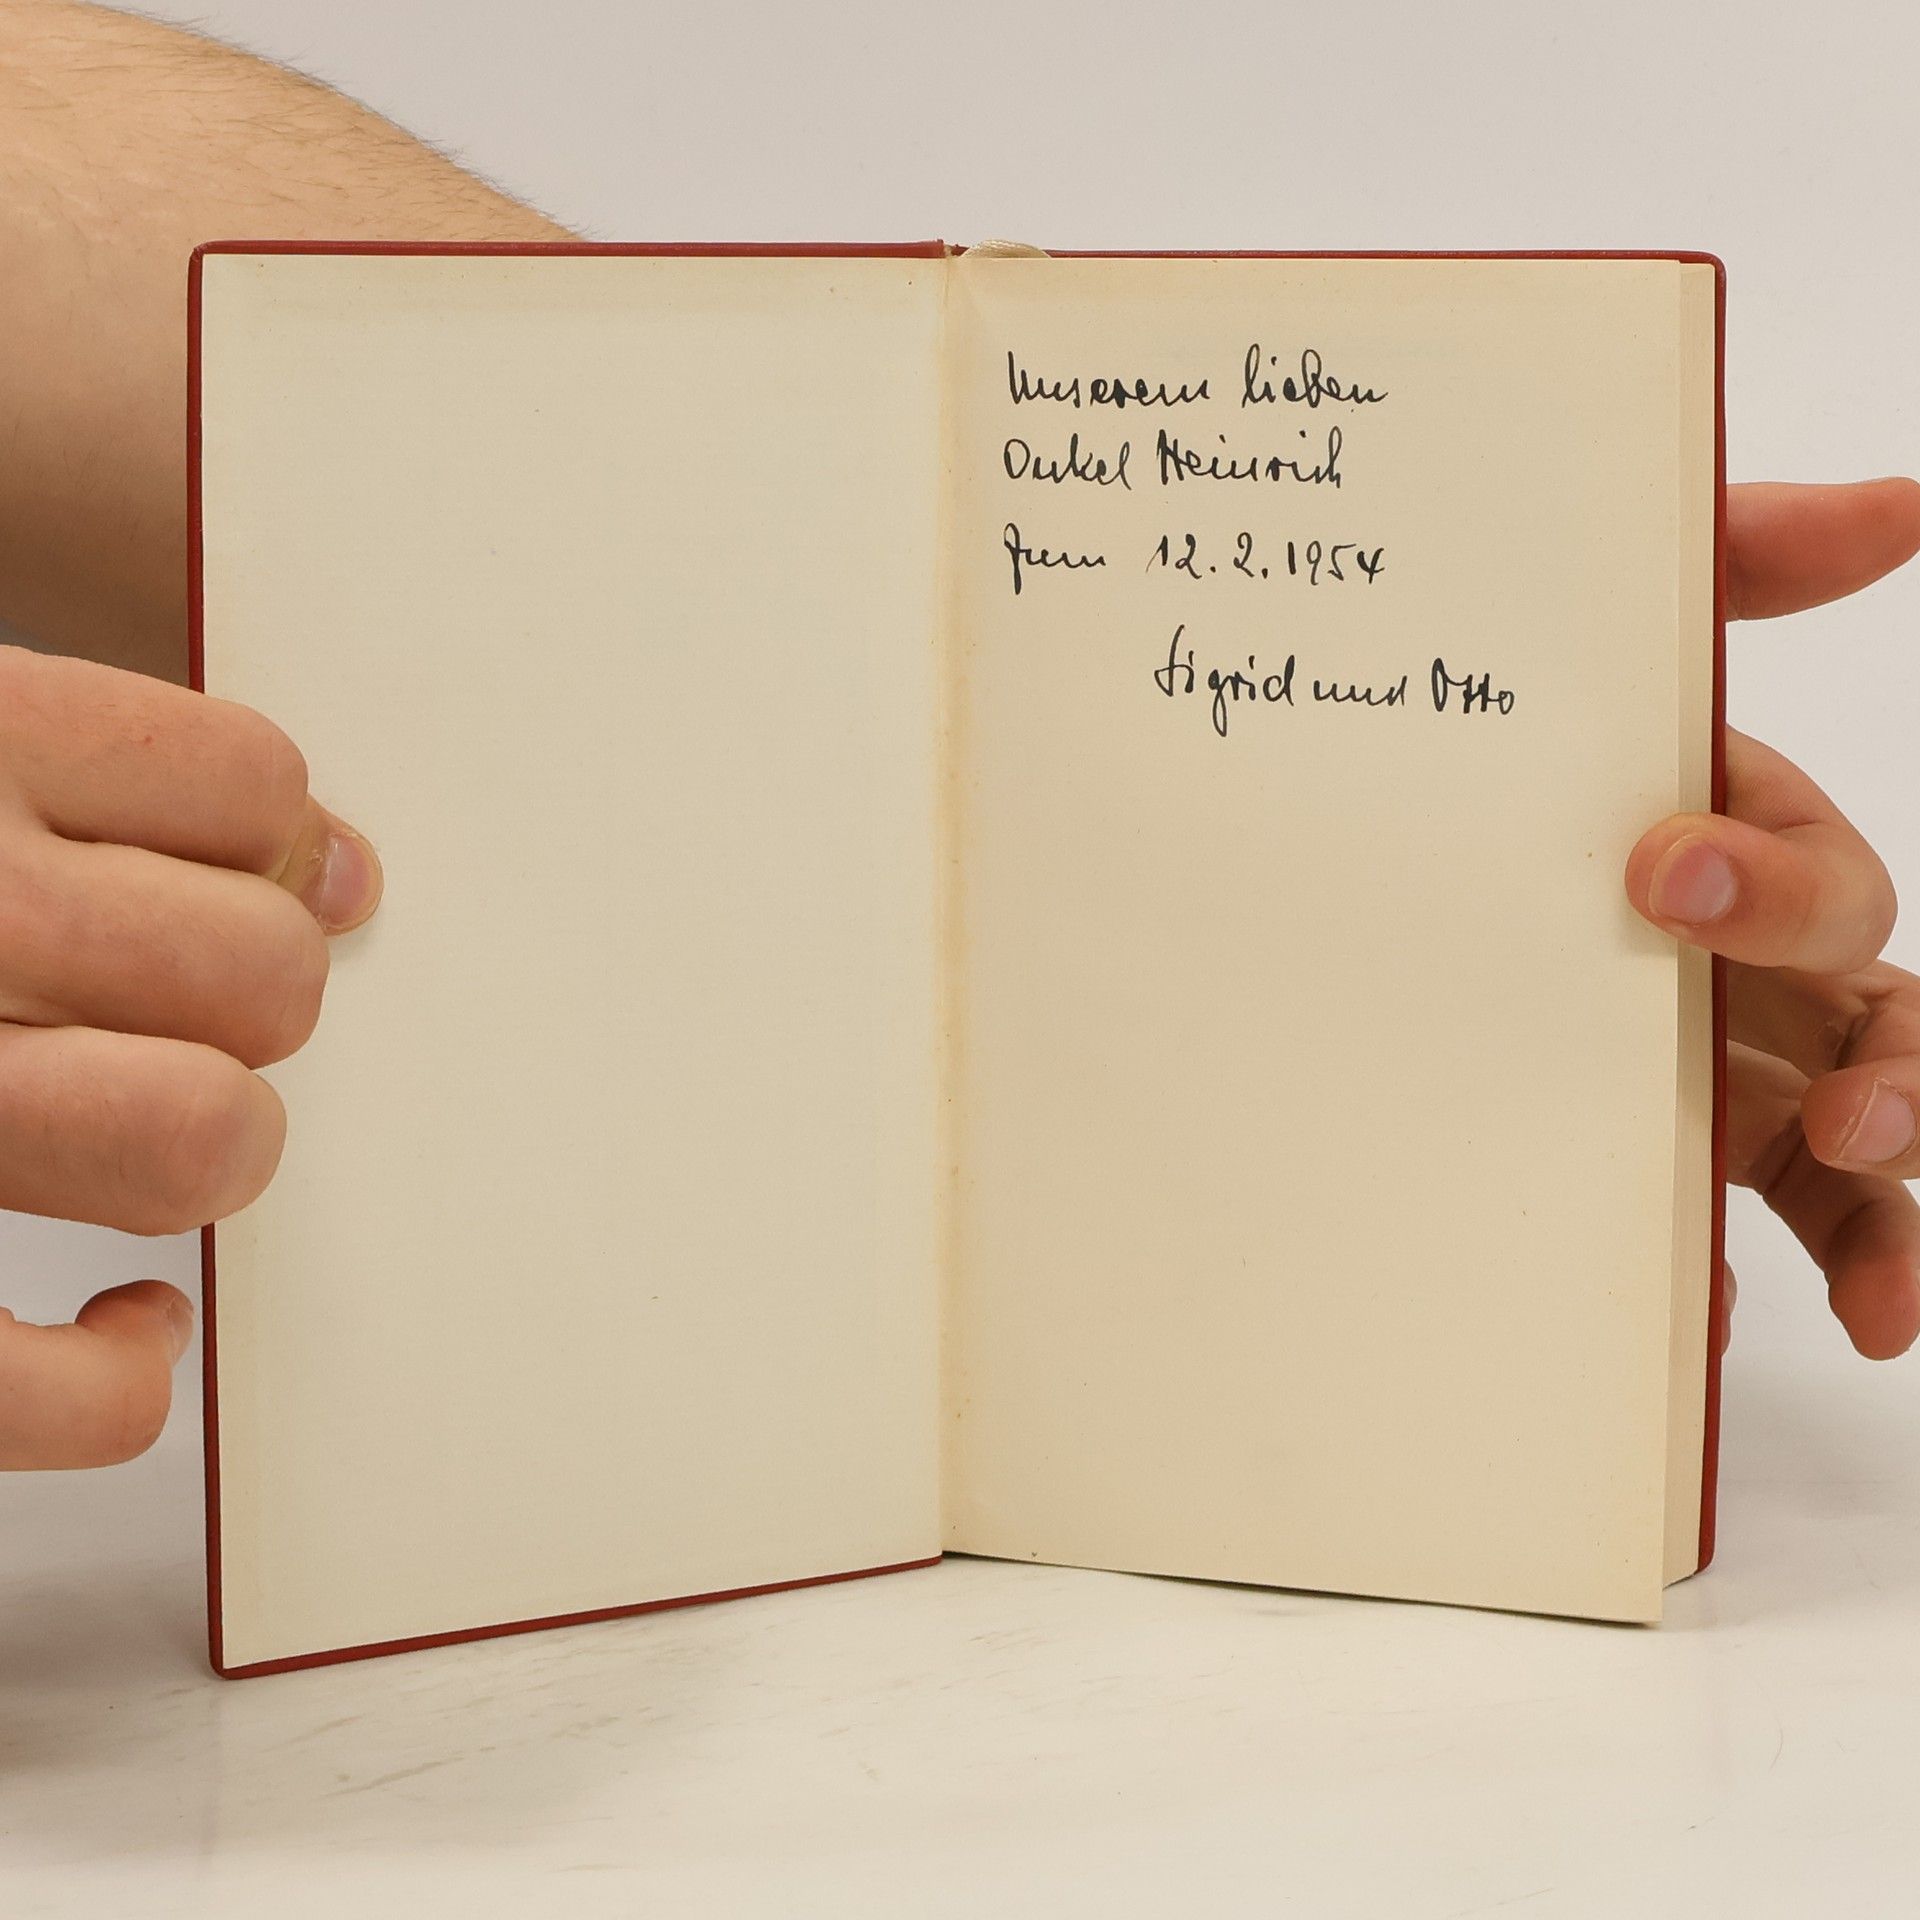 Unserem lieben
Onkel Heinrich
zum 12. 2. 1954
Sigrid und Otto